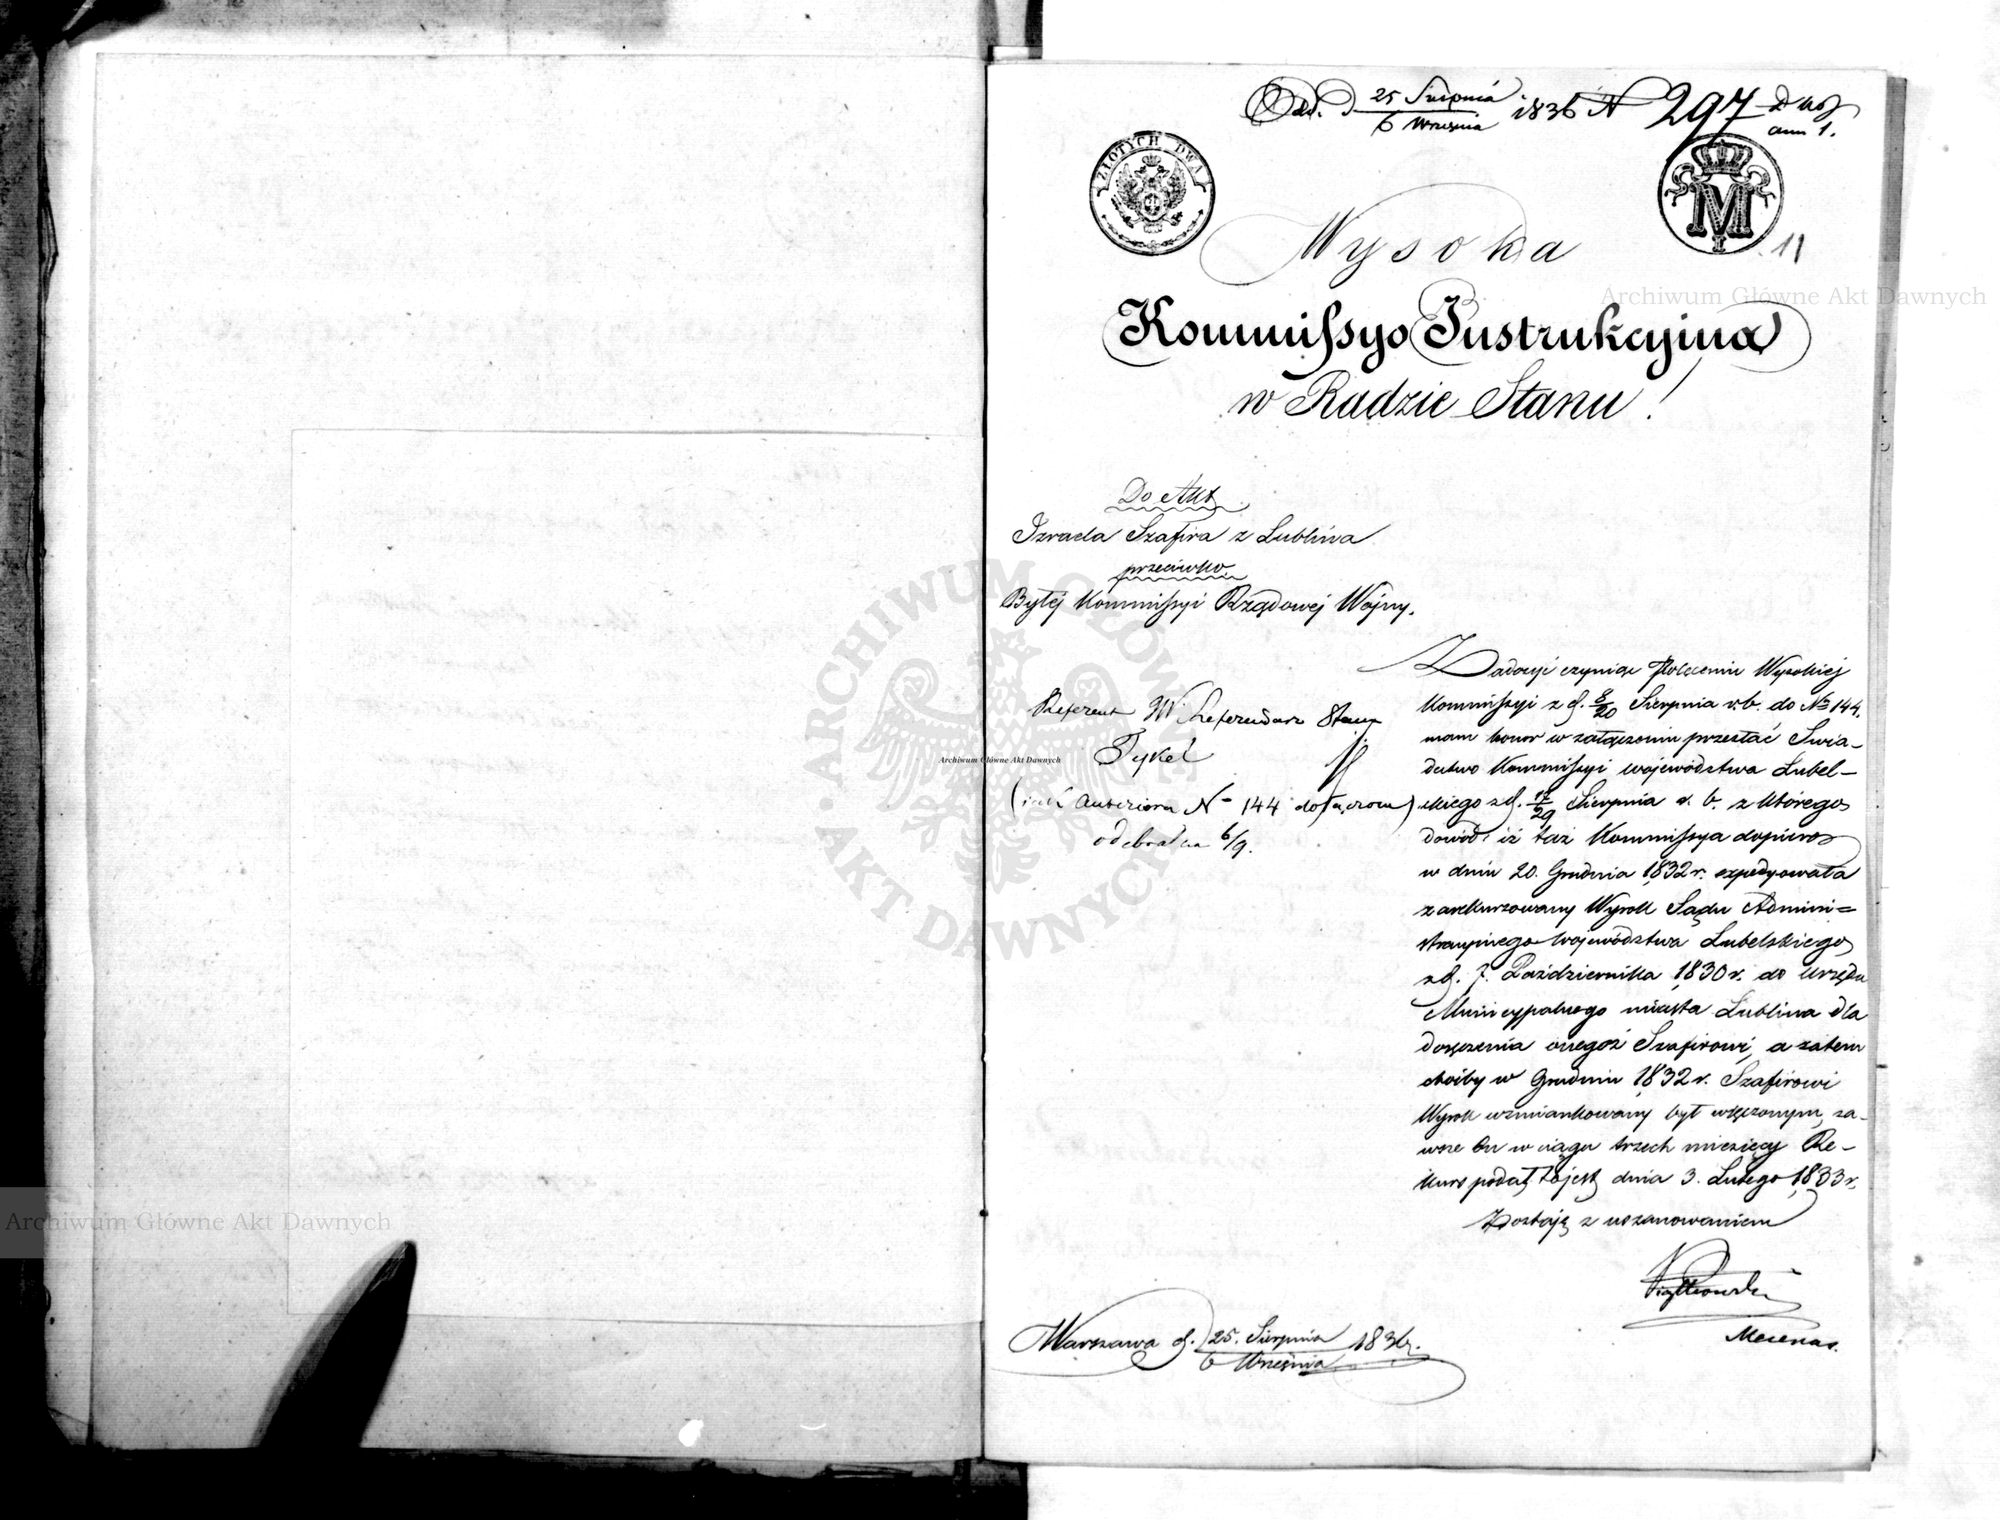 Odd. d 25 Sierpnia / 6 Września 1836 N 297 Dwa
ann 1.
ZŁOTYCH DWA
M
11
Wysoka
Kommissyo Instrukcyina
w Radzie Stanu!
Do Akt
Izraela Szafira z Lublina
przeciwko
Byłej Kommissyi Rządowej Wojny.
Referent W Referendarz Stanu
Tykel
(iak Anteriora N 144 dołączone)
odebrałem 6/9.
Zadosyć czyniąc Poleceniu Wysokiej
Kommissyi z d. 8/20 Sierpnia r. b. do No 144.
mam honor w załączeniu przesłać Świa–
dectwo Kommissyi województwa Lubel–
skiego z d. 17/29 Sierpnia r. b. z którego
dowód iż taż Kommissya dopiero
w dniu 20. Grudnia 1832 r. expedyowała
zarekurzowany Wyrok Sądu Admini=
stracyinego Województwa Lubelskiego
z d. 7. Października 1830 r. do Urzędu
Municypalnego miasta Lublina dla
doręczenia onegoż Szafirowi, a zatem
choćby w Grudniu 1832 r. Szafirowi
Wyrok wzmiankowany był wręczonym, za–
wsze On w ciągu trzech miesięcy Re–
kurs podał, to jest dnia 3. Lutego 1833 r.
Zostaję z uszanowaniem
Piątkowski
Mecenas.
Warszawa d. 25. Sierpnia / 6 Września 1836 r.
Archiwum Główne Akt Dawnych
Archiwum Główne Akt Dawnych
Archiwum Główne Akt Dawnych
ARCHIWUM GŁÓWNE AKT DAWNYCH